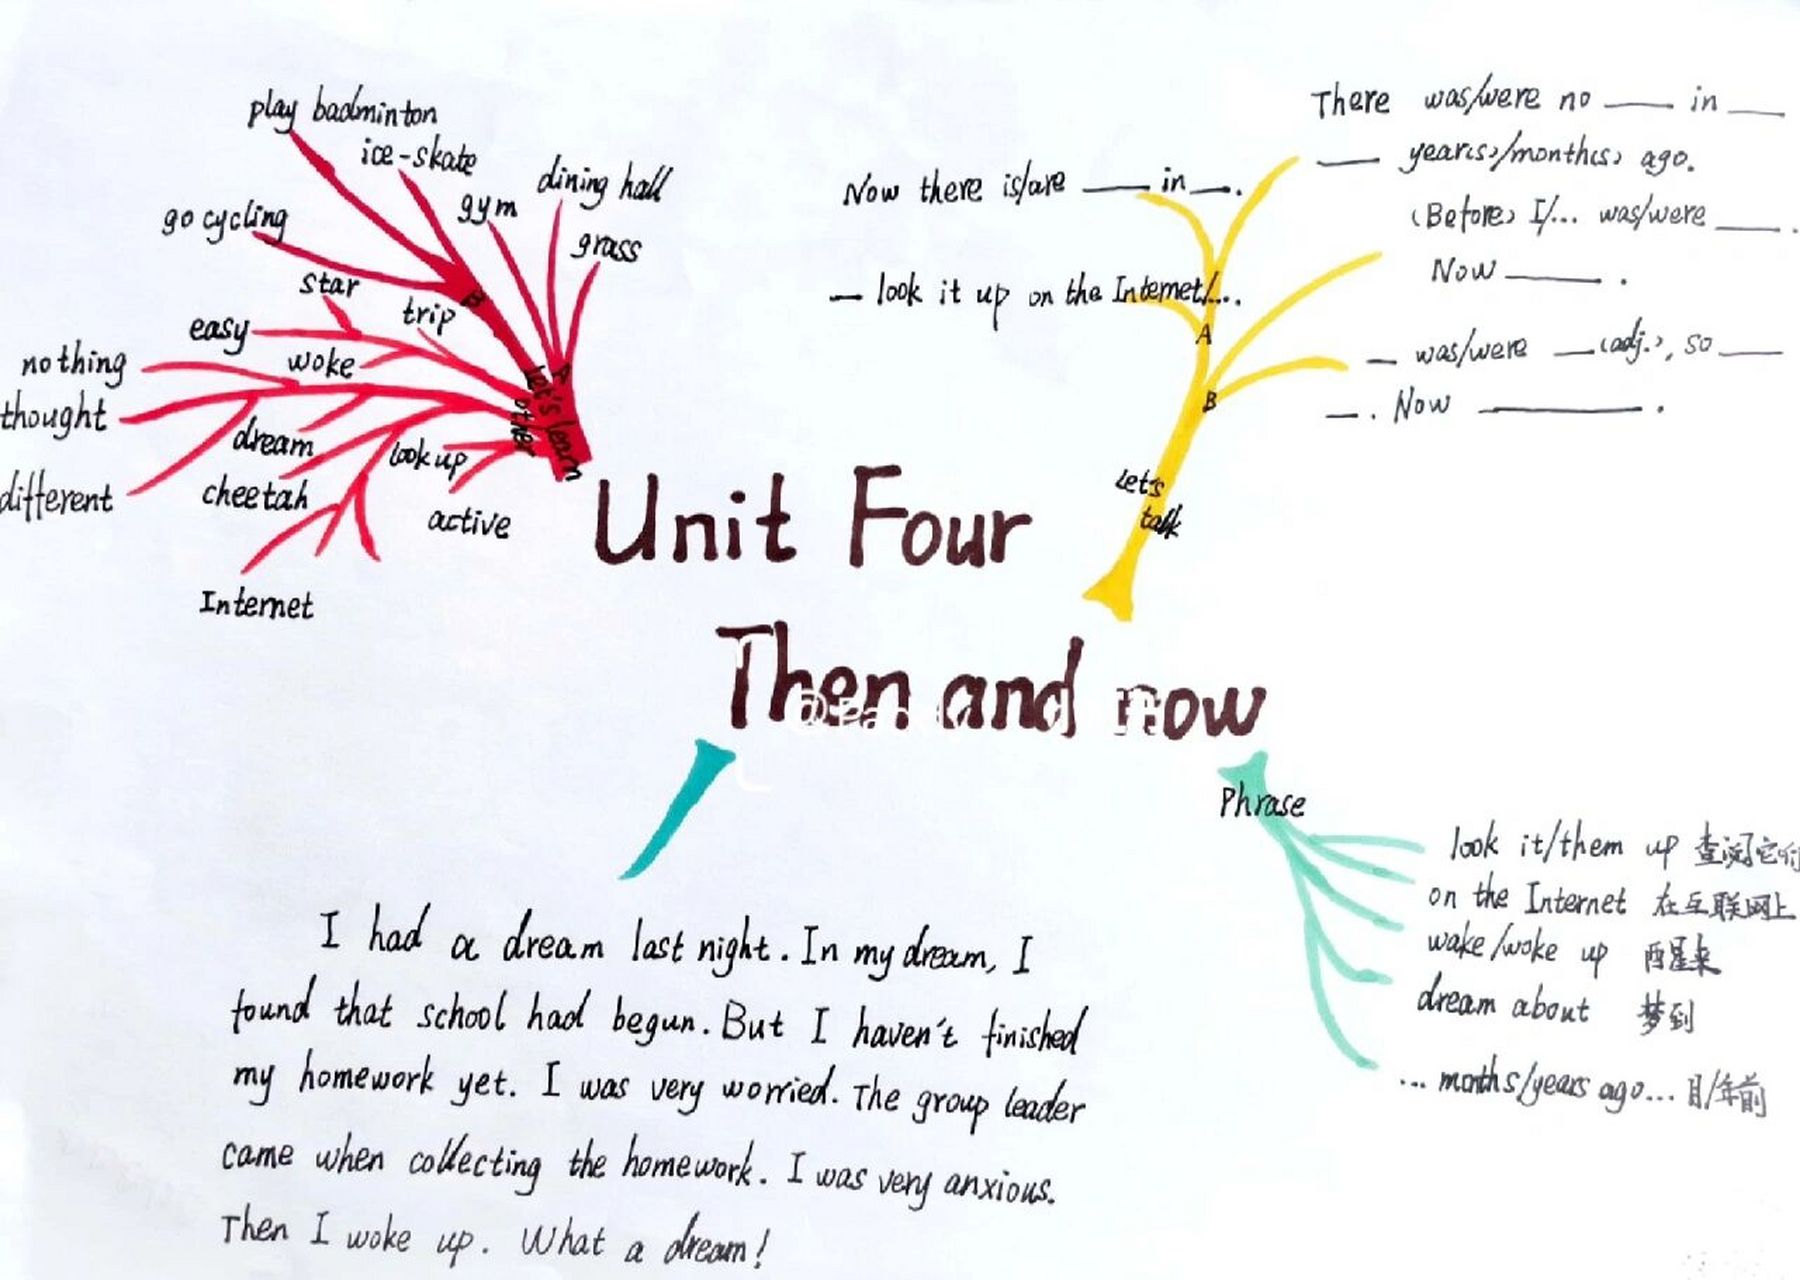 play badminton
ice-skate
dining hall
gym
go cycling
grass
star
trip
easy
woke
nothing
thought
dream
look up
different
cheetah
active
Internet
B
A
Let's learn
other
Unit Four
Then and now
There was/were no ____ in ____
____ year(s)/month(s) ago.
Now there is/are ____ in ___.
(Before) I/... was/were ____.
Now ____.
__ look it up on the Internet/...
A
__ was/were ___(adj.), so ____
__. Now ________.
B
Let's
talk
Phrase
look it/them up 查阅它们
on the Internet 在互联网上
wake/woke up 醒来
dream about 梦到
... months/years ago ... 月/年前
I had a dream last night. In my dream, I
found that school had begun. But I haven't finished
my homework yet. I was very worried. The group leader
came when collecting the homework. I was very anxious.
Then I woke up. What a dream!